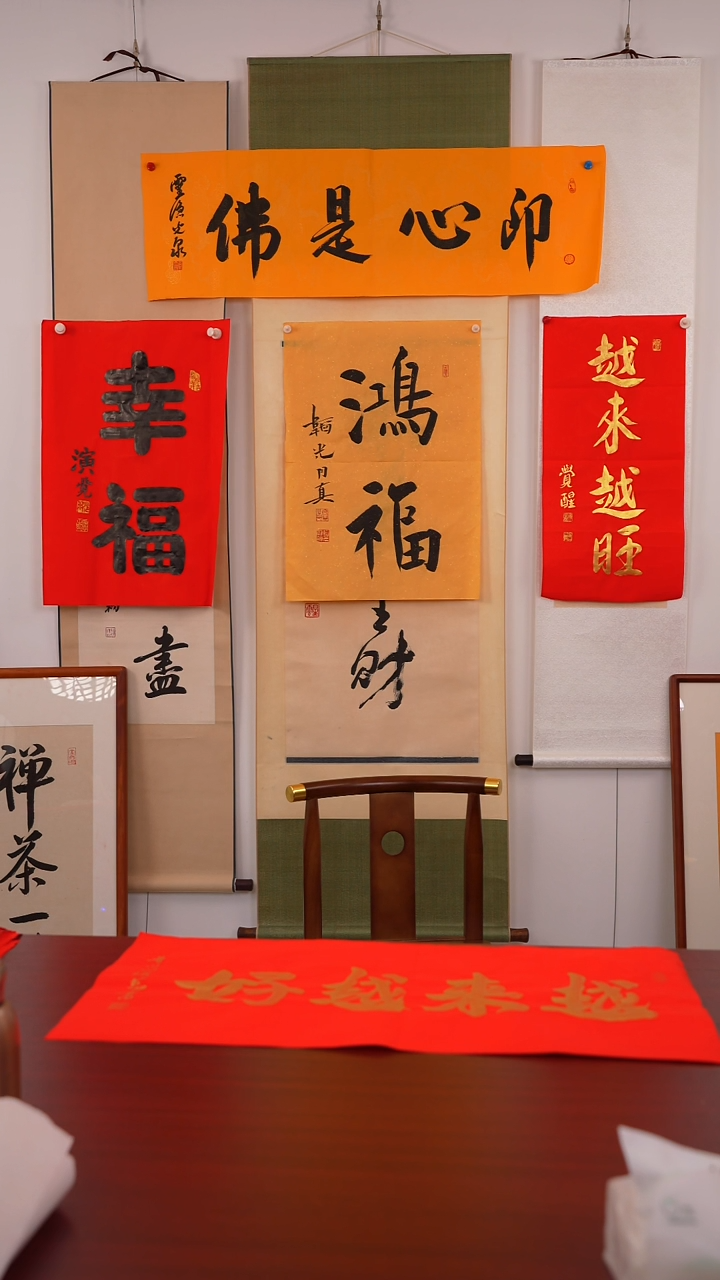 即心是佛
靈隱光泉
幸福
演覺
鴻福
韜光月真
越來越旺
覺醒
盡
財
禅茶一
越来越好